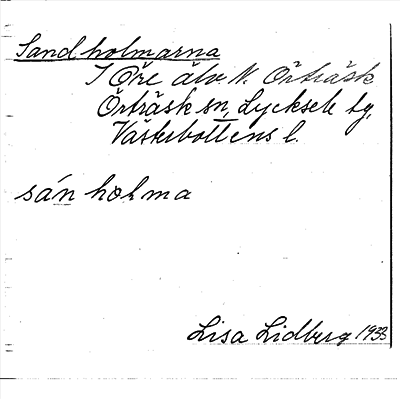 Sandholmarna
I Öre älv. N. Örträsk
Örträsk sn, Lycksele tg,
Västerbottens l.
sán holma
Lisa Lidberg 1933